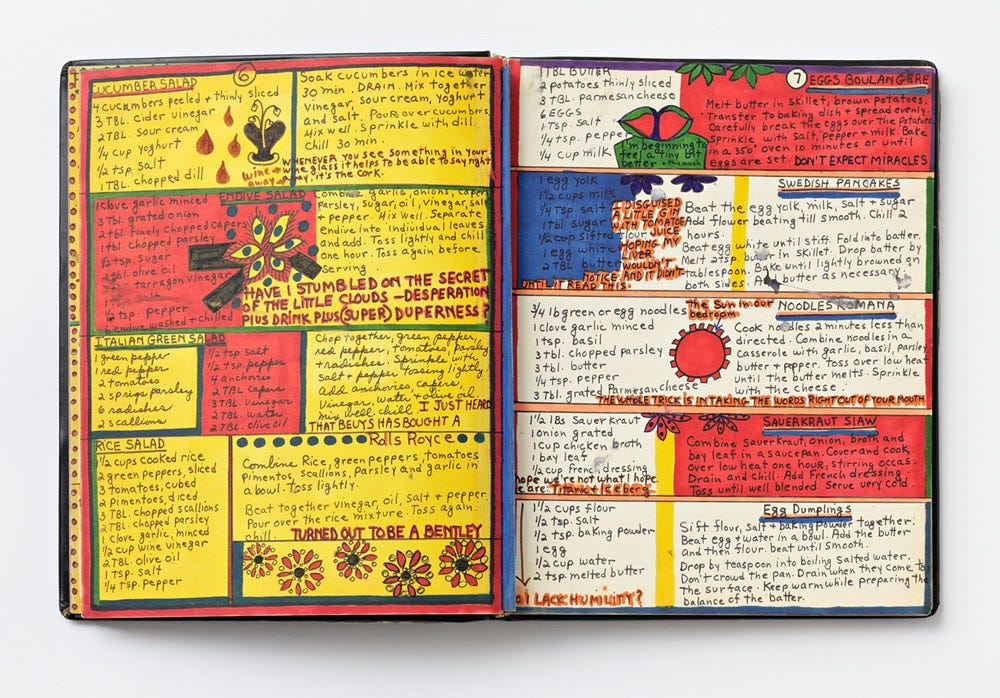 CUCUMBER SALAD
6
4 cucumbers peeled + thinly sliced
3 TBL. cider vinegar
2 TBL. sour cream
1/4 cup yoghurt
1/2 tsp. salt
1 TBL. chopped dill
Soak cucumbers in ice water
30 min. DRAIN. Mix together
Vinegar, sour cream, yoghurt
and salt. Pour over cucumbers
Mix well. Sprinkle with dill.
Chill 30 min.
WHENEVER YOU SEE SOMETHING IN YOUR
wine + wine glass it helps TO BE ABLE TO SAY RIGHT
away, it's THE CORK.
ENDIVE SALAD
1 clove garlic minced
3 Tbl. grated onion
2 tbl. finely Chopped capers
1 tbl. Chopped parsley
1/2 tsp. sugar
2 tbl. olive oil
1 tarragon vinegar
1 tsp. salt
1/4 tsp. pepper
6 endive washed + chilled
Combine garlic, onions, capers
parsley, sugar, oil, vinegar, salt
+ pepper. Mix well. Separate
endive into individual leaves
and add. Toss lightly and chill
one hour. Toss again before
serving
HAVE I STUMBLED ON THE SECRET
OF THE LITTLE CLOUDS — DESPERATION
PLUS DRINK PLUS (SUPER) DUPERNESS?
ITALIAN GREEN SALAD
1 green pepper
1 red pepper
2 tomatoes
2 sprigs parsley
6 radishes
2 scallions
1/2 tsp. salt
1/2 tsp. pepper
4 anchovies
2 TBL. Capers
3 TBL. Vinegar
2 TBL. water
2 TBL. olive oil
Chop together, green pepper,
red pepper, tomatoes, parsley
+ radishes. Sprinkle with
salt + pepper tossing lightly,
add anchovies, capers,
Vinegar, water + olive oil
mix well. chill. I JUST HEARD
THAT BEUYS HAS BOUGHT A
Rolls Royce
RICE SALAD
1 1/2 cups Cooked rice
2 green peppers, sliced
3 tomatoes, cubed
2 Pimentos, diced
3 TBL. chopped scallions
2 TBL. chopped parsley
1 clove garlic, minced
1/2 cup wine vinegar
2 TBL. olive oil
1 tsp. salt
1/4 tsp. pepper
Combine Rice, green peppers, tomatoes
pimentos, scallions, parsley and garlic in
a bowl. Toss lightly.
Beat together vinegar, oil, salt + pepper.
Pour over the rice mixture. Toss again.
chill. TURNED OUT TO BE A BENTLEY
7
EGGS BOULANGERE
1 TBL BUTTER
2 potatoes thinly sliced
3 TBL. parmesan cheese
6 EGGS
1 Tsp. salt
1/4 tsp. pepper
1/4 cup milk
I'm beginning to
feel a tiny bit
better
Melt butter in skillet, brown potatoes.
Transfer to baking dish + spread evenly.
Carefully break the eggs over the potatoes
Sprinkle with salt, pepper + milk. Bake
in a 350° oven 10 minutes or until
eggs are set. DON'T EXPECT MIRACLES
SWEDISH PANCAKES
1 egg yolk
1 1/2 cups milk
1/4 Tsp. salt
1 tbl. sugar
1/2 cup sifted flour
1 egg white
2 TBL. butter
I DISGUISED
A LITTLE GIN
WITH TOMATOE
JUICE
HOPING MY
LIVER
WOULDN'T
NOTICE AND IT DIDN'T
UNTIL IT READ THIS.
Beat the egg yolk, milk, salt + sugar
Add flour beating till smooth. Chill 2
hours.
Beat egg white until stiff. Fold into batter.
Melt 2 tsp. butter in skillet. Drop batter by
tablespoon. Bake until lightly browned on
both sides. Add butter as necessary.
NOODLES ROMANA
3/4 lb green or egg noodles
1 clove garlic minced
1 tsp. basil
3 tbl. chopped parsley
3 tbl. butter
1/4 tsp. pepper
3 tbl. grated Parmesan cheese
The Sun in our
bedroom
Cook noodles 2 minutes less than
directed. Combine noodles in a
casserole with garlic, basil, parsley,
butter + pepper. Toss over low heat
until the butter melts. Sprinkle
with the cheese.
THE WHOLE TRICK IS IN TAKING THE WORDS RIGHT OUT OF YOUR MOUTH
SAUERKRAUT SLAW
1 1/2 lbs Sauerkraut
1 onion grated
1 cup chicken broth
1 bay leaf
1/2 cup french dressing
hope we're not what I hope
we are: Titanic + Iceberg
Combine Sauerkraut, onion, broth and
bay leaf in a saucepan. Cover and cook
over low heat one hour, stirring occas.
Drain and chill. Add French dressing
Toss until well blended. Serve very cold.
Egg Dumplings
1 1/2 cups flour
1/2 tsp. salt
1/2 tsp. baking powder
1 egg
1/2 cup water
2 tsp melted butter
DO I LACK HUMILITY?
Sift flour, salt + baking powder together.
Beat egg + water in a bowl. Add the butter
and then flour. beat until smooth.
Drop by teaspoon into boiling salted water.
Don't crowd the pan. Drain when they come to
the surface. Keep warm while preparing the
balance of the batter.